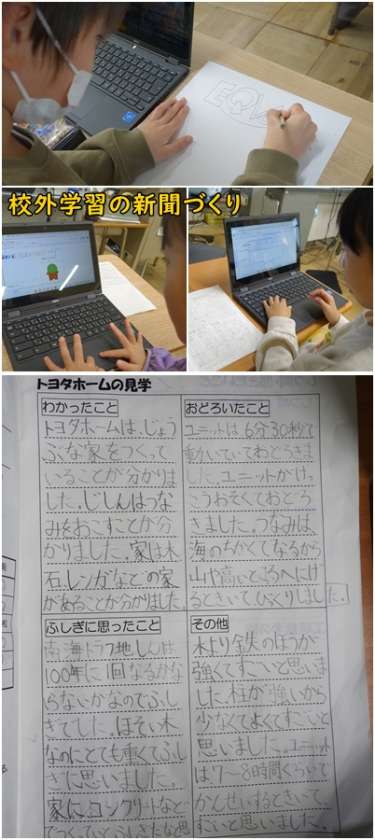 EQU
校外学習の新聞づくり
トヨタホームの見学
わかったこと
トヨタホームは、じょう
ぶな家をつくって
いることが分かりま
した。じしんはつな
みをおこすことが分
かりました。家は木
石、レンガなどの家
があることが分かりました。
おどろいたこと
ユニットは6分30秒で
動いていておどろきま
した。ユニットがけっ
こうおそくておどろ
きました。つなみは、
海のちかくでなるから
山や高いところへにげ
るときいてびっくりしました。
ふしぎに思ったこと
南海トラフ地しんは
100年に1回なるかな
らないかなのでふし
ぎでした。ほそい木
なのにとても重くてふし
ぎに思いました。
家にコンクリートなど
その他
木より鉄のほうが
強くてすごいと思いま
した。柱が強いから
少なくてよくてすごいと
思いました。ユニット
は7〜8時間くらいで
かんせいするときいて、
すごいと思いました。